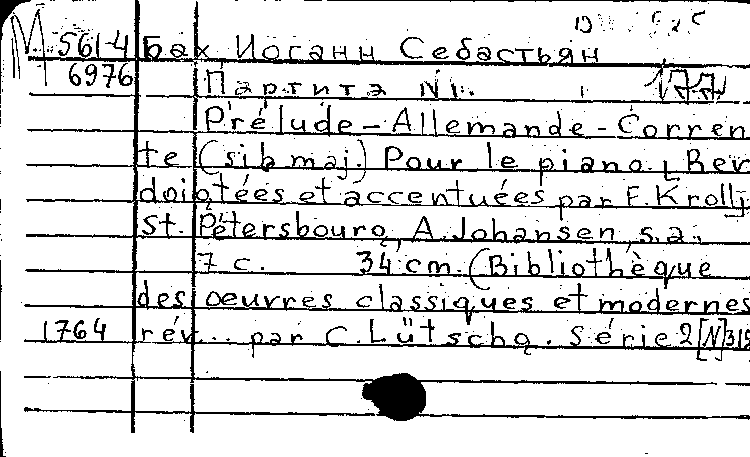 М 561-4 Бах Иоганн Себастьян
6976 Партита №1.
Prélude-Allemande-Corren
te (sib maj.) Pour le piano. [Rev
doigtées et accentuées par F. Kroll]
St. Pétersbourg, A. Johansen, s.a.
7 c. 34 cm. (Bibliothèque
des oeuvres classiques et modernes
1764 rév... par C. Lütschg. Série 2 [N]